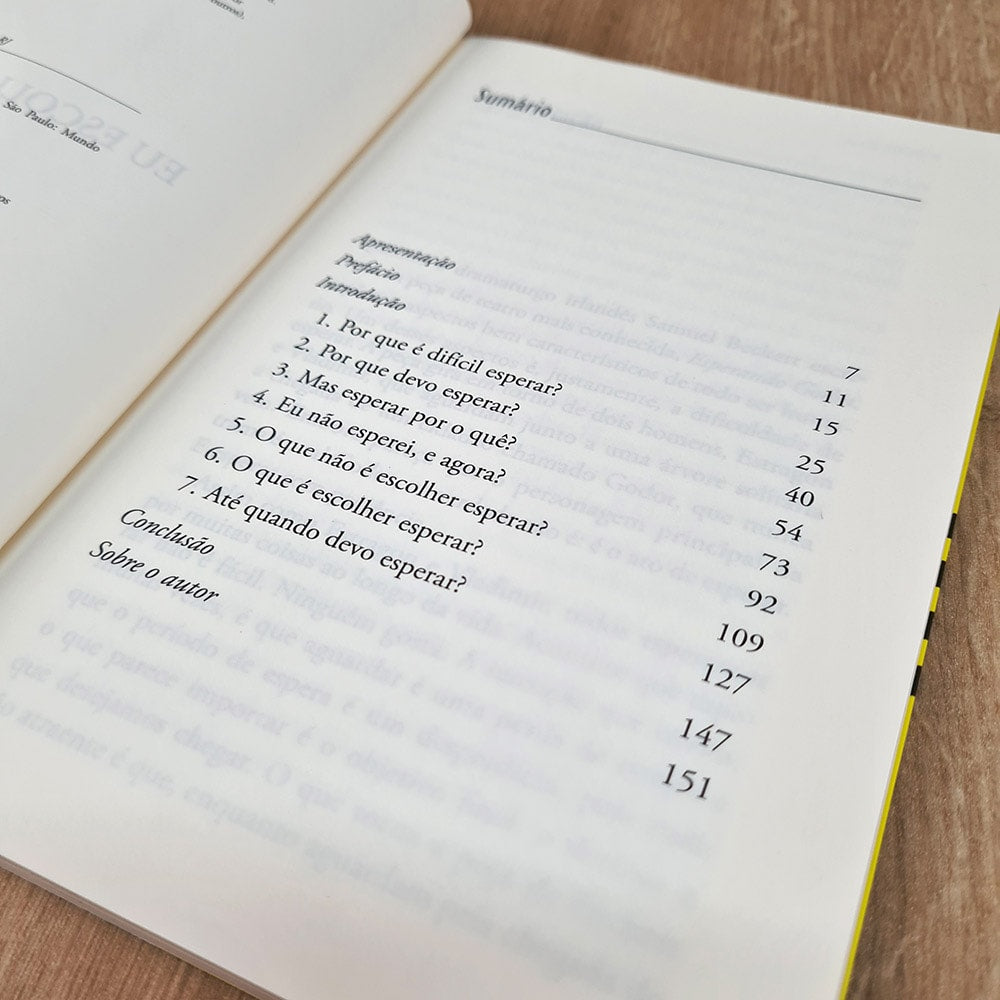 outros).
São Paulo: Mundo
Sumário
Apresentação 7
Prefácio 11
Introdução 15
1. Por que é difícil esperar? 25
2. Por que devo esperar? 40
3. Mas esperar por o quê? 54
4. Eu não esperei, e agora? 73
5. O que não é escolher esperar? 92
6. O que é escolher esperar? 109
7. Até quando devo esperar? 127
Conclusão 147
Sobre o autor 151